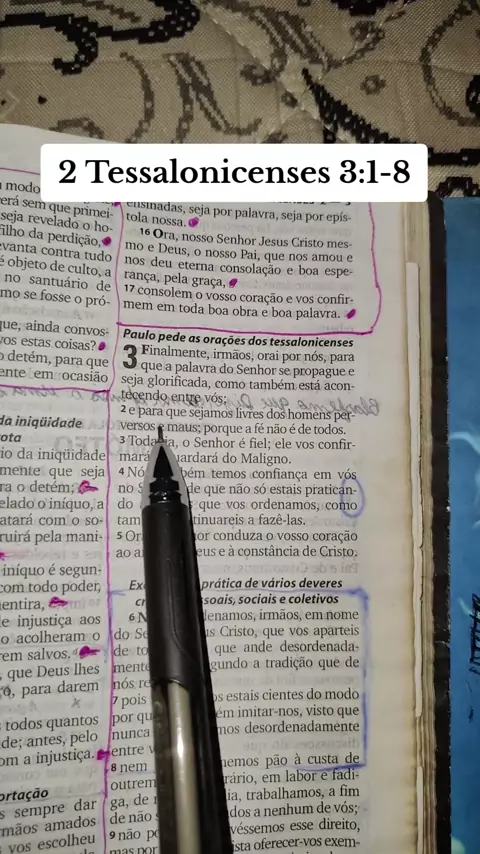 2 Tessalonicenses 3:1-8
modo
erá sem que primei-
seja revelado o ho-
filho da perdição,
evanta contra tudo
é objeto de culto, a
no santuário de
mo se fosse o pró-
que, ainda convos-
vos estas coisas?
o detém, para que
ente em ocasião
da iniqüidade
ota
io da iniqüidade
mente que seja
ra o detém;
elado o iníquo, a
atará com o so-
ruirá pela mani-
iníquo é segun-
com todo poder,
entira,
e injustiça aos
o acolheram o
rem salvos.
, que Deus lhes
o, para darem
todos quantos
de; antes, pelo
om a injustiça.
ortação
s sempre dar
mãos amados
vos escolheu
ensinadas, seja por palavra, seja por epís-
tola nossa.
16 Ora, nosso Senhor Jesus Cristo mes-
mo e Deus, o nosso Pai, que nos amou e
nos deu eterna consolação e boa espe-
rança, pela graça,
17 consolem o vosso coração e vos confir-
mem em toda boa obra e boa palavra.
Paulo pede as orações dos tessalonicenses
3 Finalmente, irmãos, orai por nós, para
que a palavra do Senhor se propague e
seja glorificada, como também está acon-
tecendo entre vós;
2 e para que sejamos livres dos homens per-
versos e maus; porque a fé não é de todos.
3 Todavia, o Senhor é fiel; ele vos confir-
mará guardará do Maligno.
4 Nós também temos confiança em vós
no de que não só estais pratican-
do que vos ordenamos, como
tam tinuareis a fazê-las.
5 Ora or conduza o vosso coração
ao a eus e à constância de Cristo.
Ex prática de vários deveres
soais, sociais e coletivos
6 N denamos, irmãos, em nome
do Se us Cristo, que vos aparteis
de to que ande desordenada-
mente gundo a tradição que de
nós re
7 pois s estais cientes do modo
por qu ém imitar-nos, visto que
nunca mos desordenadamente
entre v
8 nem memos pão à custa de
outrem rário, em labor e fadi-
ga, de n ia, trabalhamos, a fim
de não s dos a nenhum de vós;
9 não po véssemos esse direito,
mas por ista oferecer-vos exem-